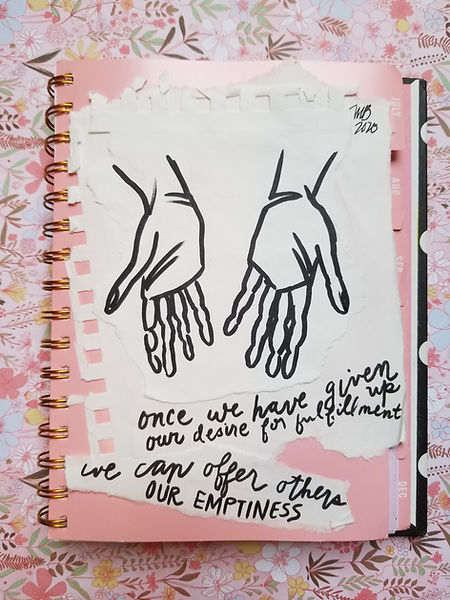 MB
2020
JULY
AUG
SEP
once we have given up
our desire for fulfillment
we can offer others
OUR EMPTINESS
DEC